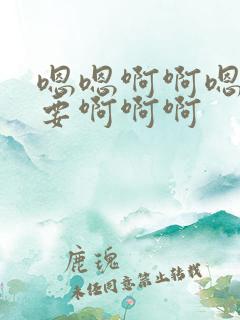 嗯嗯啊啊嗯
要啊啊啊
鹿瑰
未经同意禁止转载